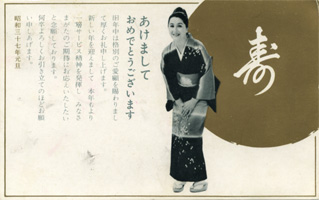 寿
あけまして
おめでとうございます
旧年中は格別のご愛顧を賜わりまし
て厚くお礼申し上げます。
新しい年を迎えまして 本年もより
一層サービス精神を発揮し みなさ
まがたのご期待にお応えいたしたい
と念願しております。
何卒よろしくお引き立てのほどお願
い申しあげます。
昭和三十七年元旦